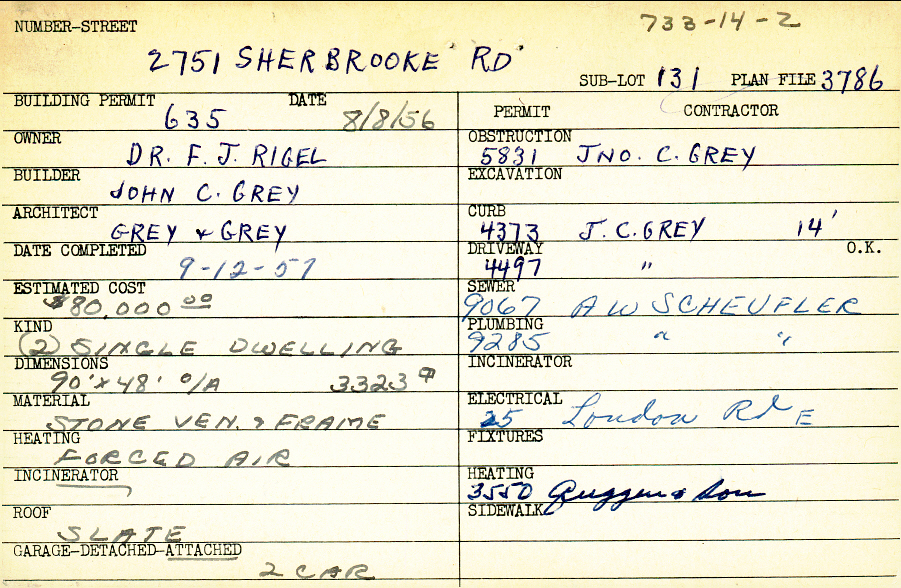 NUMBER-STREET 733-14-2
2751 SHERBROOKE RD
SUB-LOT 131 PLAN FILE 3786
BUILDING PERMIT DATE
635 8/8/56
OWNER
DR. F. J. RIGEL
BUILDER
JOHN C. GREY
ARCHITECT
GREY & GREY
DATE COMPLETED
9-12-57
ESTIMATED COST
$80,000 00
KIND
(2) SINGLE DWELLING
DIMENSIONS
90' x 48' O/A 3323
MATERIAL
STONE VEN. & FRAME
HEATING
FORCED AIR
INCINERATOR
ROOF
SLATE
GARAGE-DETACHED-ATTACHED
2 CAR
PERMIT CONTRACTOR
OBSTRUCTION
5831 JNO. C. GREY
EXCAVATION
CURB
4373 J. C. GREY 14'
DRIVEWAY O.K.
4497 "
SEWER
9067 A W SCHEUFLER
PLUMBING
9285 " "
INCINERATOR
ELECTRICAL
25 London Rd E
FIXTURES
HEATING
3550 & Son
SIDEWALK